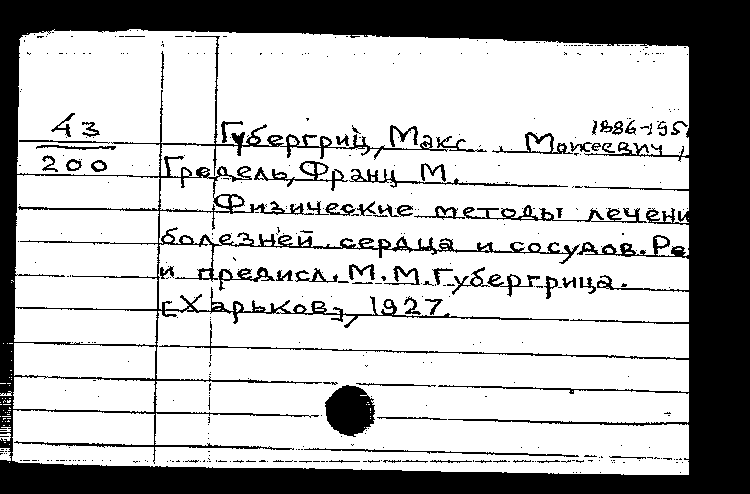 43
200
1886-195
Губергриц, Макс Моисеевич,
Гредель, Франц М.
Физические методы лечени
болезней сердца и сосудов. Ре
и предисл. М. М. Губергрица.
[Харьков], 1927.